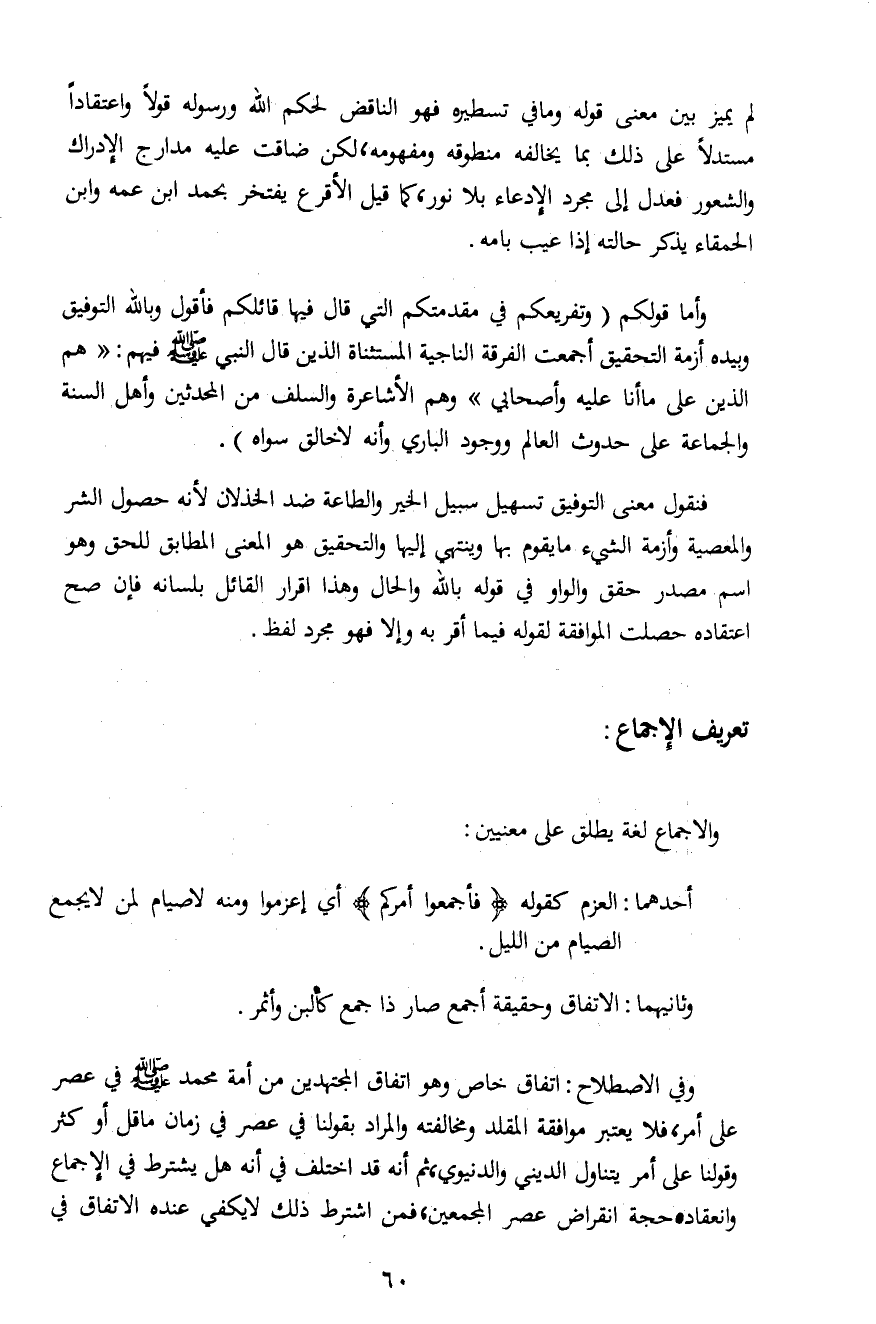 لم يميز بين معنى قوله ومافي تسطيره فهو الناقض لحكم الله ورسوله قولاً واعتقاداً
مستدلاً على ذلك بما يخالفه منطوقه ومفهومه،لكن ضاقت عليه مدارج الإدراك
والشعور فعدل إلى مجرد الإدعاء بلا نور،كما قيل الأقرع يفتخر بحمد ابن عمه وابن
الحمقاء يذكر حالته إذا عيب بامه .
وأما قولكم ( وتفريعكم في مقدمتكم التي قال فيها قائلكم فأقول وبالله التوفيق
وبيده أزمة التحقيق أجمعت الفرقة الناجية المستثناة الذين قال النبي ﷺ فيهم : « هم
الذين على ماأنا عليه وأصحابي » وهم الأشاعرة والسلف من المحدثين وأهل السنة
والجماعة على حدوث العالم ووجود الباري وأنه لاخالق سواه ) .
فنقول معنى التوفيق تسهيل سبيل الخير والطاعة ضد الخذلان لأنه حصول الشر
والمعصية وأزمة الشيء مايقوم بها وينتهي إليها والتحقيق هو المعنى المطابق للحق وهو
اسم مصدر حقق والواو في قوله بالله والحال وهذا اقرار القائل بلسانه فإن صح
اعتقاده حصلت الموافقة لقوله فيما أقر به وإلا فهو مجرد لفظ .
تعريف الإجماع :
والاجماع لغة يطلق على معنيين :
أحدهما : العزم كقوله ﴿ فأجمعوا أمركم ﴾ أي إعزموا ومنه لاصيام لمن لايجمع
الصيام من الليل .
وثانيهما : الاتفاق وحقيقة أجمع صار ذا جمع كألبن وأثمر .
وفي الاصطلاح : اتفاق خاص وهو اتفاق المجتهدين من أمة محمد ﷺ في عصر
على أمر،فلا يعتبر موافقة المقلد ومخالفته والمراد بقولنا في عصر في زمان ماقل أو كثر
وقولنا على أمر يتناول الديني والدنيوي،ثم أنه قد اختلف في أنه هل يشترط في الإجماع
وانعقاده حجة انقراض عصر المجمعين،فمن اشترط ذلك لايكفي عنده الاتفاق في
٦٠